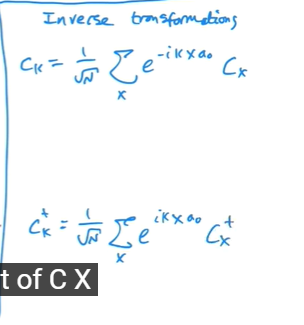 Inverse transformations
C_k = 1/√N Σ_x e^{-ikxa₀} C_x
C_k^† = 1/√N Σ_x e^{ikxa₀} C_x^†
t of C X